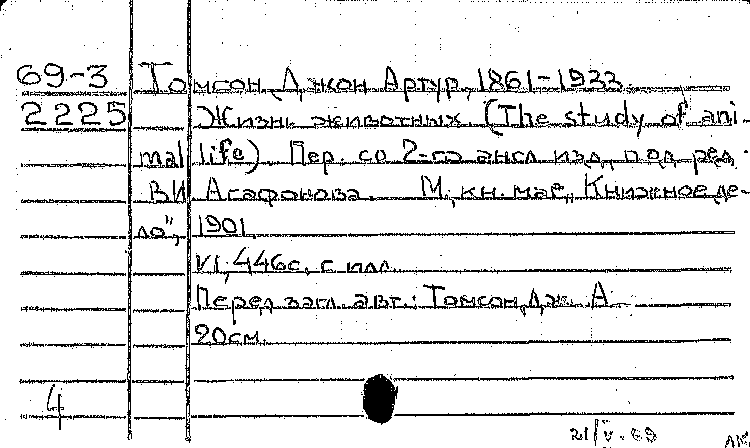 69-3 Томсон, Джон Артур, 1861-1933.
2225 Жизнь животных. (The study of ani-
mal life). Пер. со 2-го англ. изд., под ред.
В И Агафонова. М., кн. маг. „Книжное де-
ло", 1901.
VI, 446с. с илл.
Перед загл. авт.: Томсон, Дж. А
20см.
4
21/V.69